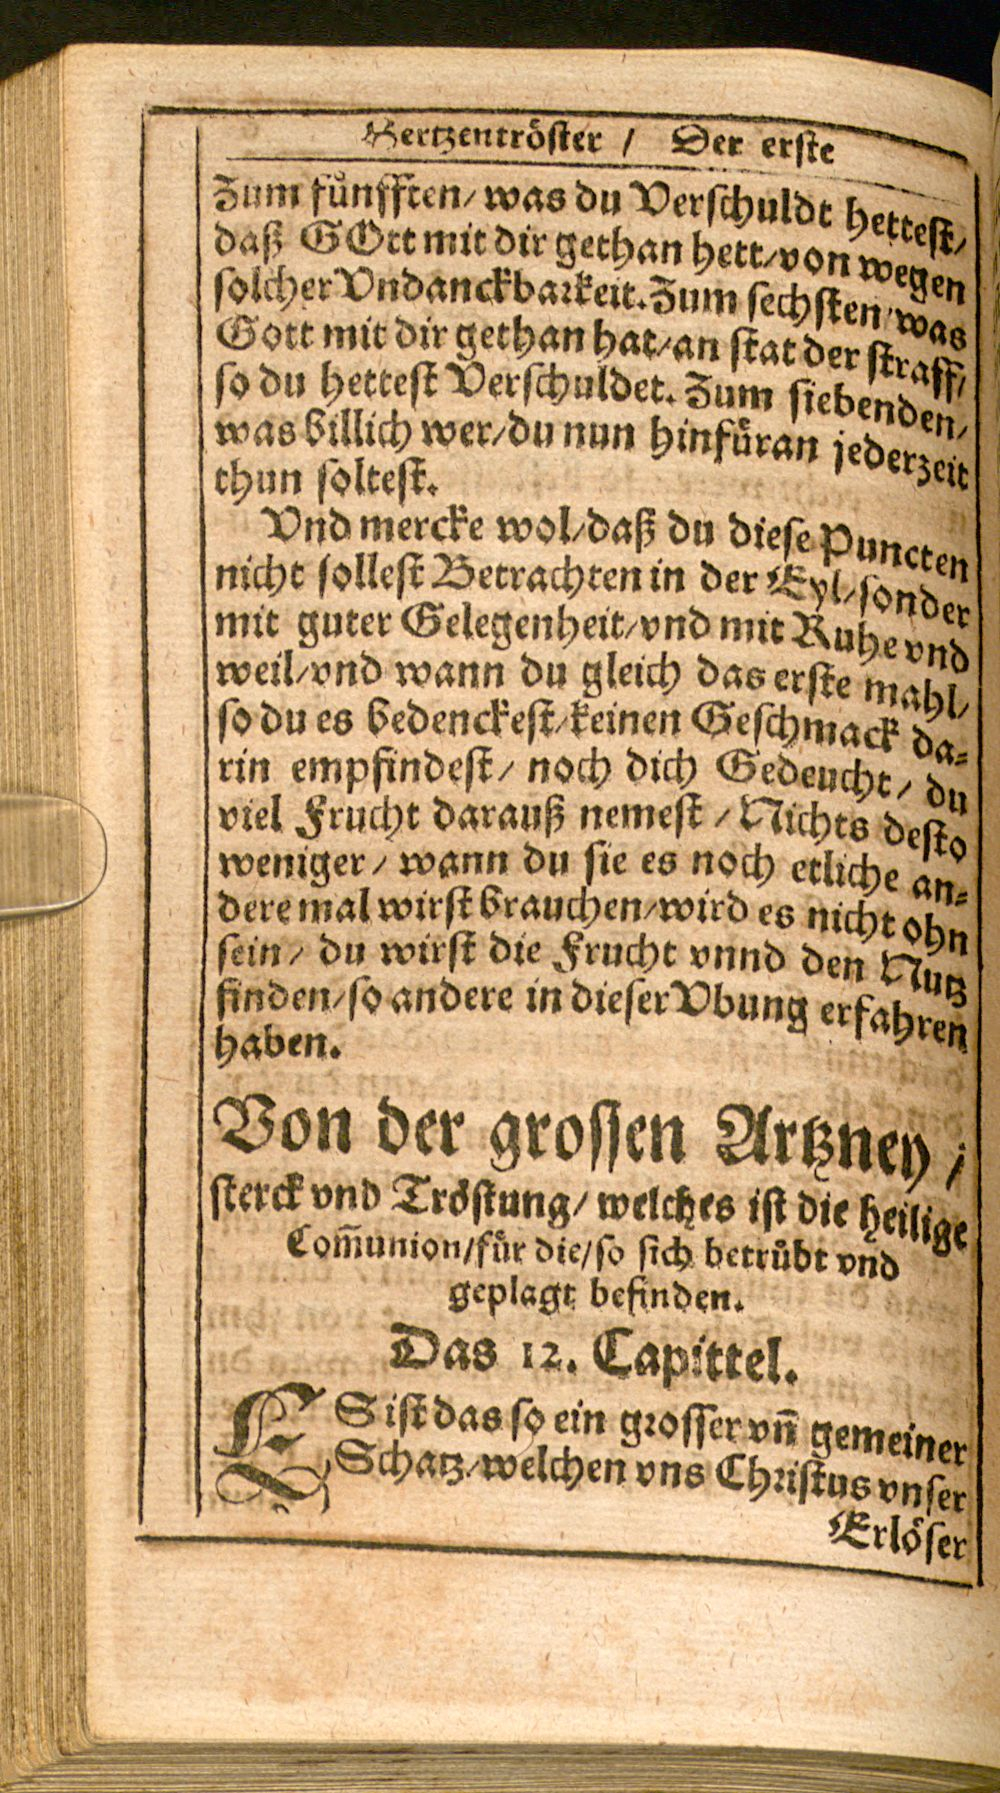 Hertzentröster / Der erste
Zum fünfften/ was du Verschuldt hettest/
daß GOtt mit dir gethan hett/von wegen
solcher Vndanckbarkeit. Zum sechsten/was
Gott mit dir gethan hat/an stat der straff/
so du hettest Verschuldet. Zum siebenden/
was billich wer/du nun hinfüran jederzeit
thun soltest.
Vnd mercke wol/daß du diese Puncten
nicht sollest Betrachten in der Eyl/sonder
mit guter Gelegenheit/vnd mit Ruhe vnd
weil/vnd wann du gleich das erste mahl/
so du es bedenckest/keinen Geschmack da-
rin empfindest/ noch dich Gedeucht/ du
viel Frucht darauß nemest / Nichts desto
weniger/ wann du sie es noch etliche an-
dere mal wirst brauchen/wird es nicht ohn
sein/ du wirst die Frucht vnnd den Nutz
finden/so andere in dieser Vbung erfahren
haben.
Von der grossen Artzney /
sterck vnd Tröstung/ welches ist die heilige
Com̃union/für die/so sich betrübt vnd
geplagt befinden.
Das 12. Capittel.
ES ist das so ein grosser vn̄ gemeiner
Schatz/welchen vns Christus vnser
Erlöser